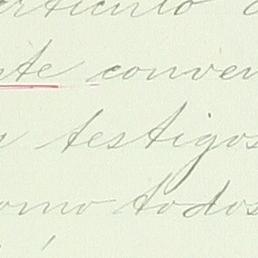 articulo
te conven
testigos
omo todos